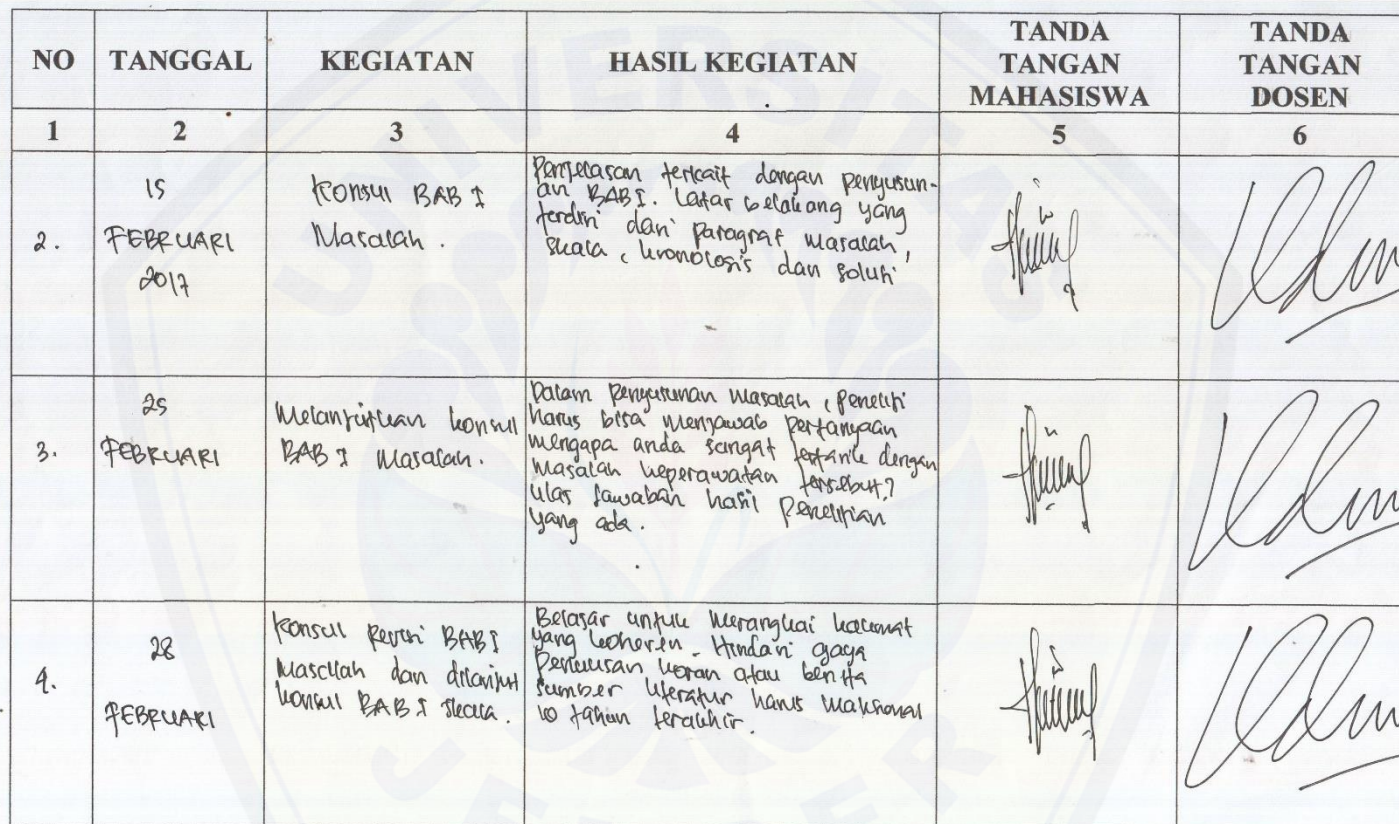 NO TANGGAL KEGIATAN HASIL KEGIATAN TANDA TANGAN MAHASISWA TANDA TANGAN DOSEN
1 2 3 4 5 6
2.
15
FEBRUARI
2017
Konsul BAB I
Masalah.
Penjelasan terkait dengan penyusun-
an BAB I. Latar belakang yang
terdiri dari paragraf masalah,
skala, kronologis dan solusi
3.
25
FEBRUARI
Melanjutkan konsul
BAB I Masalah.
Dalam penyusunan masalah, peneliti
harus bisa menjawab pertanyaan
mengapa anda sangat tertarik dengan
masalah keperawatan tersebut?
ulas jawaban hasil penelitian
yang ada.
4.
28
FEBRUARI
Konsul Revisi BAB I
Masalah dan dilanjut
konsul BAB I Skala.
Belajar untuk merangkai kalimat
yang koheren. Hindari gaya
penulisan koran atau berita
sumber literatur harus maksimal
10 tahun terakhir.
UNIVERSITAS
JEMBER